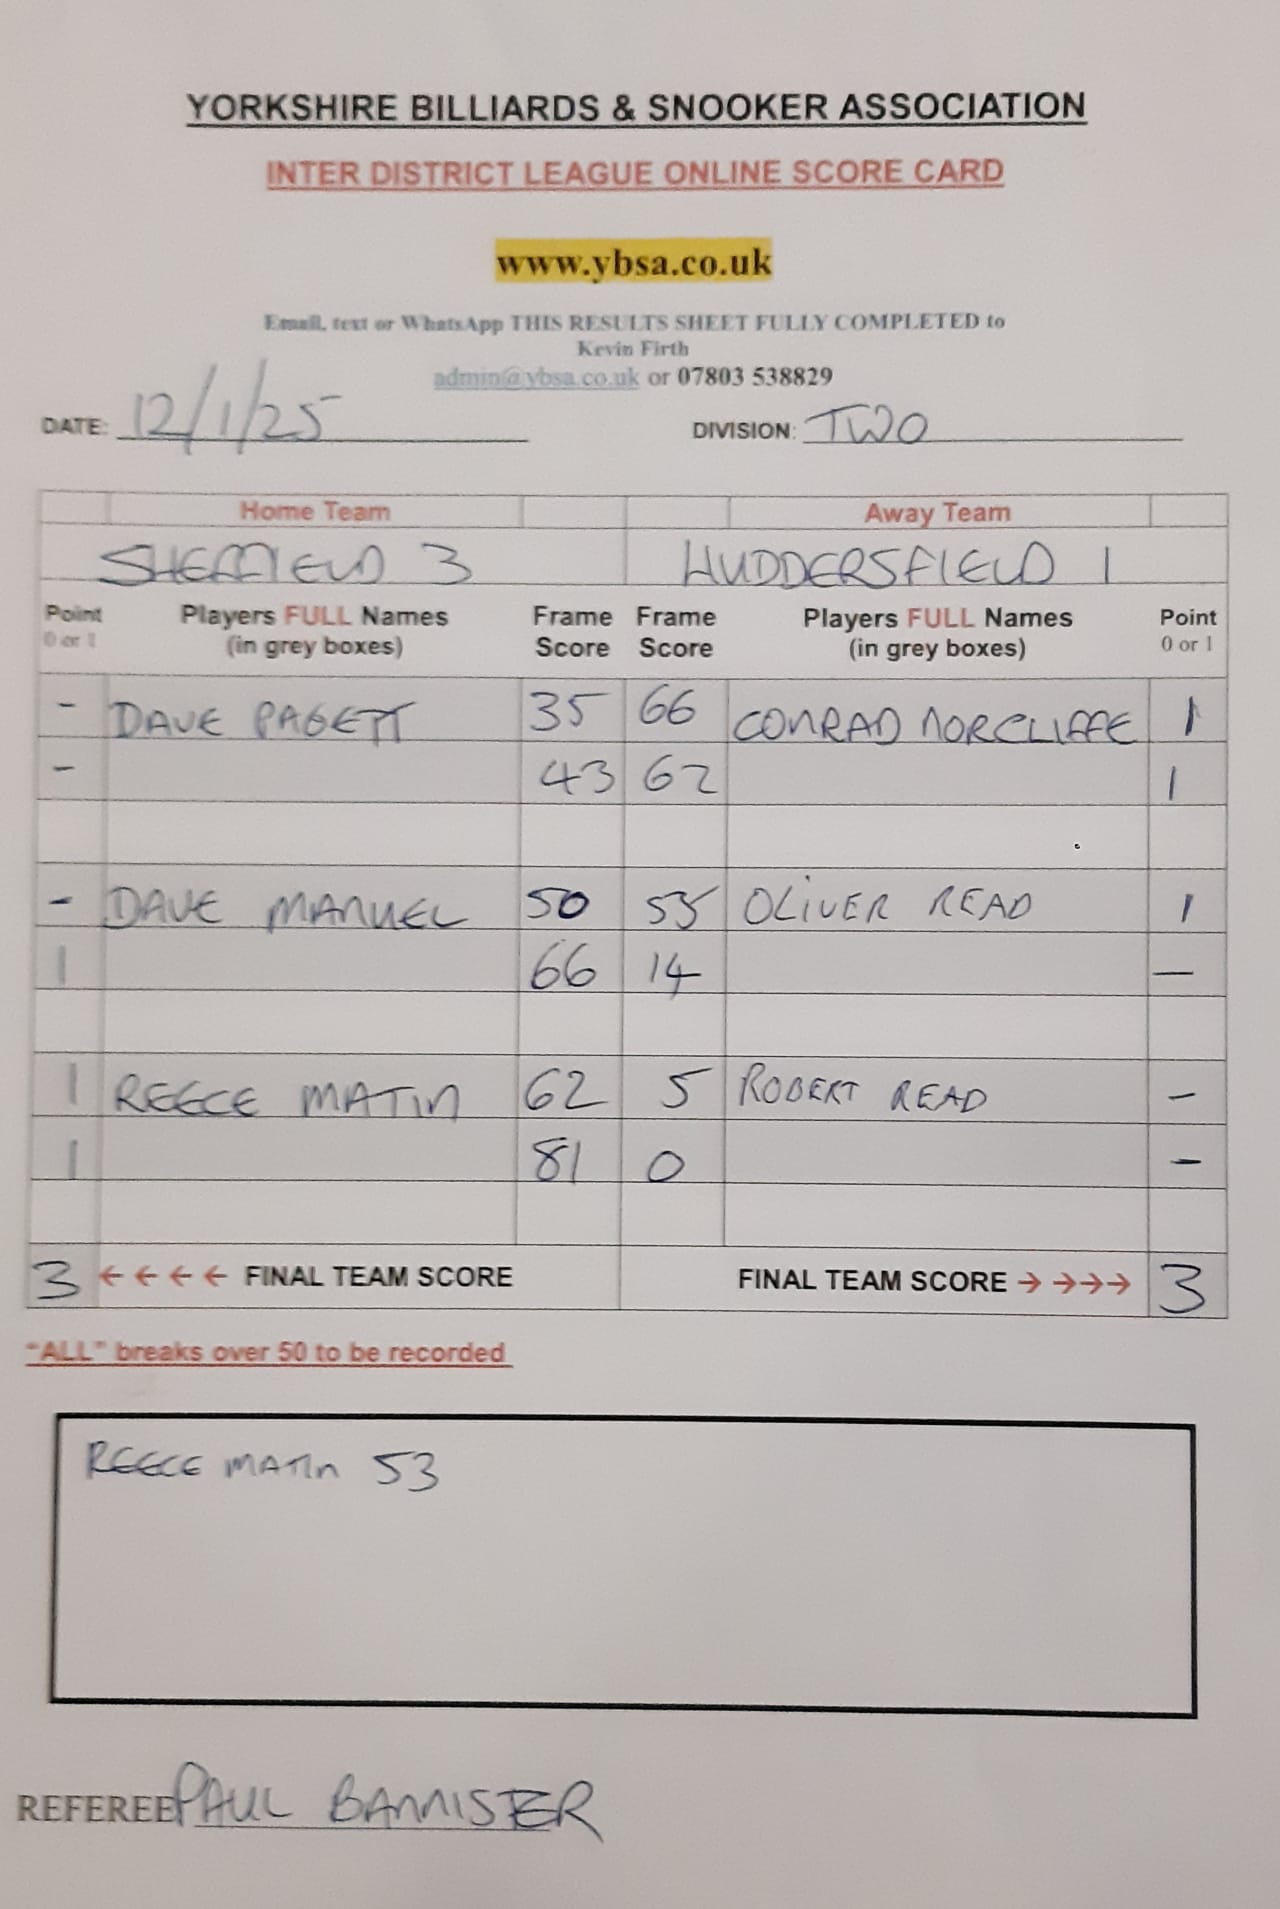 YORKSHIRE BILLIARDS & SNOOKER ASSOCIATION
INTER DISTRICT LEAGUE ONLINE SCORE CARD
www.ybsa.co.uk
Email, text or WhatsApp THIS RESULTS SHEET FULLY COMPLETED to
Kevin Firth
admin@ybsa.co.uk or 07803 538829
DATE: 12/1/25 DIVISION: TWO
Home Team Away Team
SHEFFIELD 3 HUDDERSFIELD 1
Point Players FULL Names Frame Frame Players FULL Names Point
0 or 1 (in grey boxes) Score Score (in grey boxes) 0 or 1
- DAVE PAGETT 35 66 CONRAD NORCLIFFE 1
- 43 62 1
- DAVE MANUEL 50 55 OLIVER READ 1
1 66 14 -
1 REECE MATIN 62 5 ROBERT READ -
1 81 0 -
3 ← ← ← ← FINAL TEAM SCORE FINAL TEAM SCORE → →→→ 3
"ALL" breaks over 50 to be recorded
REECE MATIN 53
REFEREE PAUL BANNISTER